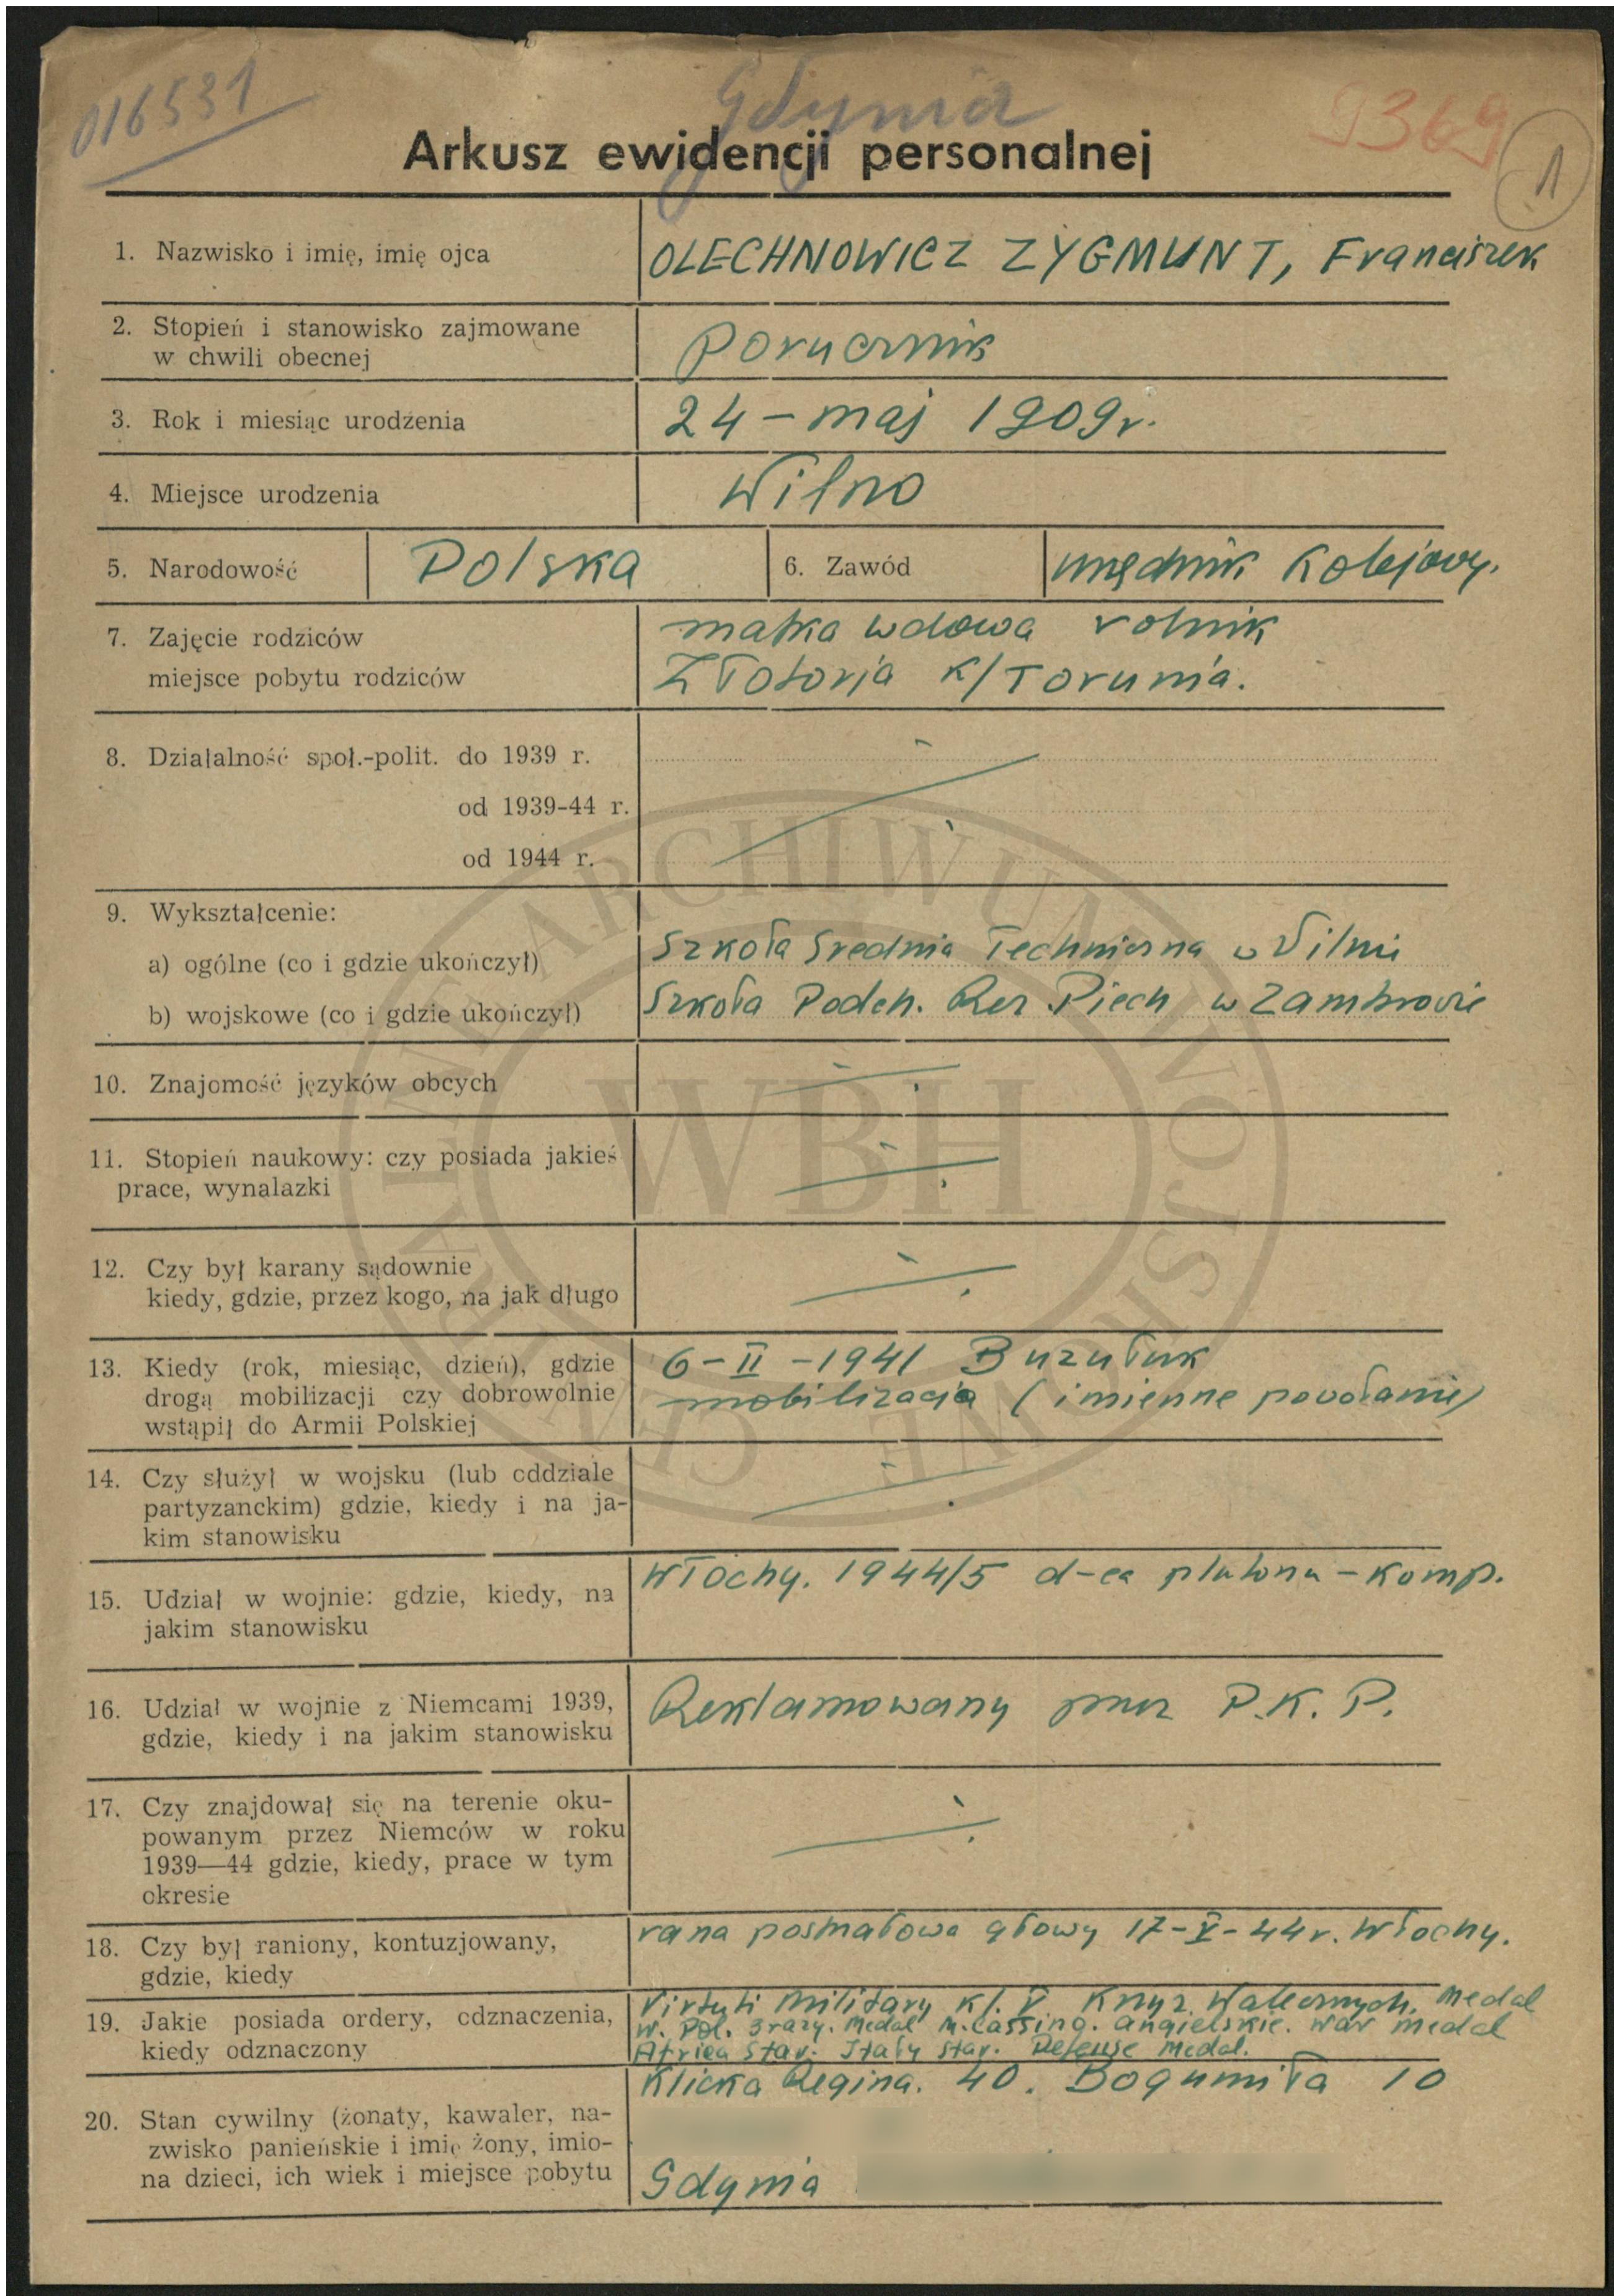 016531
Gdynia
9369
1
Arkusz ewidencji personalnej
1. Nazwisko i imię, imię ojca
OLECHNOWICZ ZYGMUNT, Franciszek
2. Stopień i stanowisko zajmowane
w chwili obecnej
porucznik
3. Rok i miesiąc urodzenia
24 - maj 1909r.
4. Miejsce urodzenia
Wilno
5. Narodowość Polska 6. Zawód urzędnik Kolejowy.
7. Zajęcie rodziców
matka wdowa rolnik
miejsce pobytu rodziców
Złotorja k/Torunia.
8. Działalność społ.-polit. do 1939 r.
od 1939-44 r.
od 1944 r.
9. Wykształcenie:
a) ogólne (co i gdzie ukończył)
Szkoła Średnia Techniczna w Wilnie
b) wojskowe (co i gdzie ukończył)
Szkoła Podch. Rez. Piech w Zambrowie
10. Znajomość języków obcych
11. Stopień naukowy: czy posiada jakieś
prace, wynalazki
12. Czy był karany sądownie
kiedy, gdzie, przez kogo, na jak długo
13. Kiedy (rok, miesiąc, dzień), gdzie
drogą mobilizacji czy dobrowolnie
wstąpił do Armii Polskiej
6-II-1941 Buzułuk
mobilizacja (imienne powołanie)
14. Czy służył w wojsku (lub oddziale
partyzanckim) gdzie, kiedy i na ja-
kim stanowisku
15. Udział w wojnie: gdzie, kiedy, na
jakim stanowisku
Włochy. 1944/5 d-ca plutonu - Komp.
16. Udział w wojnie z Niemcami 1939,
gdzie, kiedy i na jakim stanowisku
Reklamowany przez P.K.P.
17. Czy znajdował się na terenie oku-
powanym przez Niemców w roku
1939—44 gdzie, kiedy, prace w tym
okresie
18. Czy był raniony, kontuzjowany,
gdzie, kiedy
rana postrzałowa głowy 17-V-44r. Włochy.
19. Jakie posiada ordery, odznaczenia,
kiedy odznaczony
Virtuti Military Kl. V. Krzyż Walecznych. Medal
W. Pol. 3razy. Medal M.Cassino. angielskie. War medal
Africa Star. Italy Star. Defense Medal.
20. Stan cywilny (żonaty, kawaler, na-
zwisko panieńskie i imię żony, imio-
na dzieci, ich wiek i miejsce pobytu
Klicka Regina. 40. Bogumiła 10
Gdynia
WBH
CENTRALNE ARCHIWUM WOJSKOWE